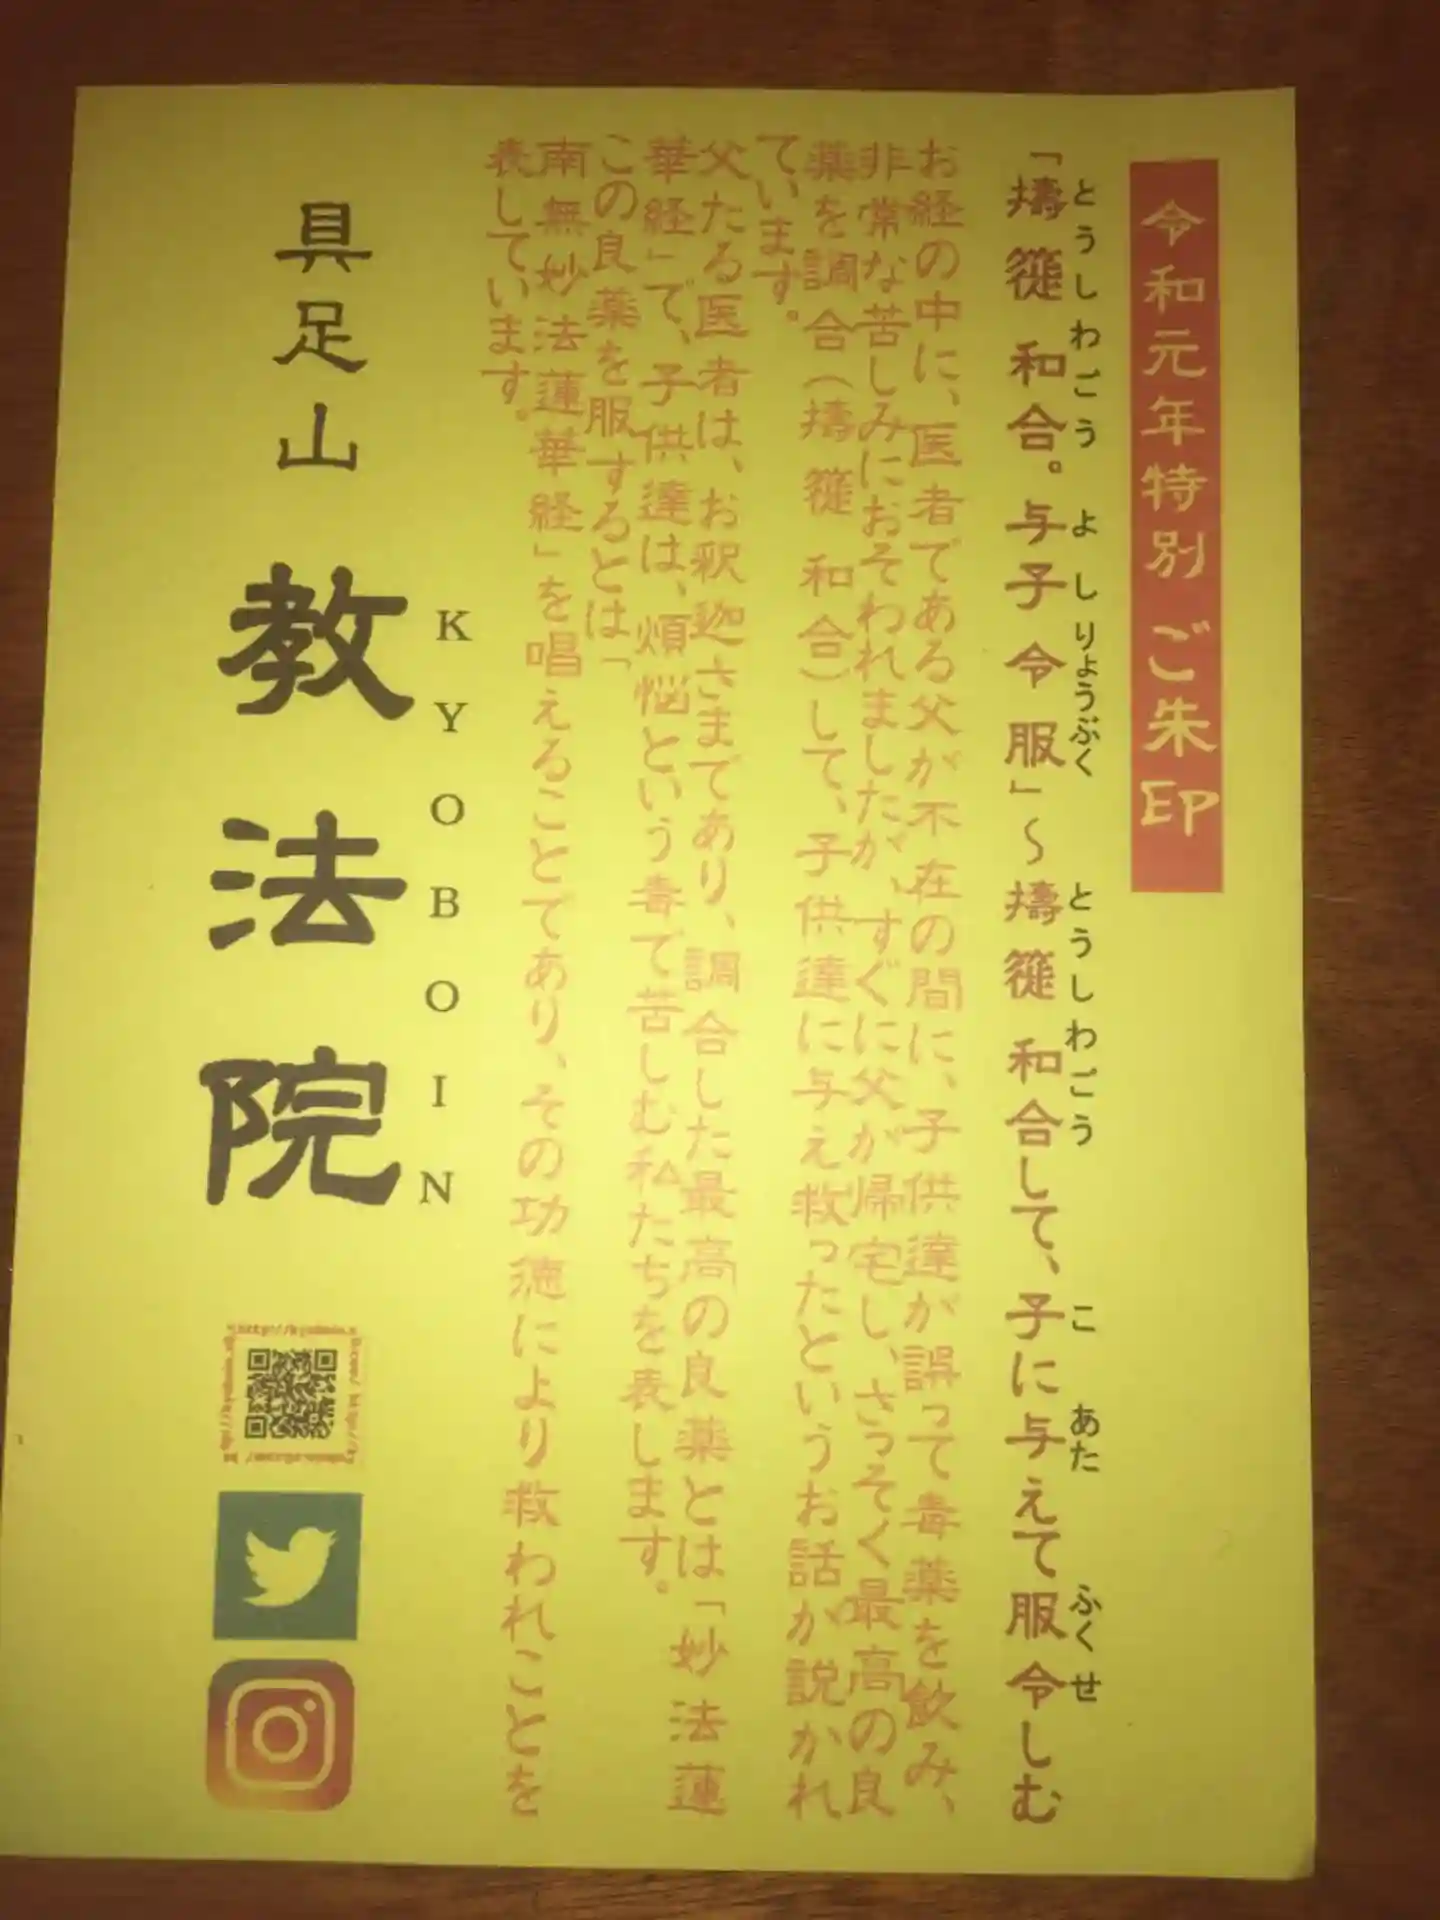 令和元年特別ご朱印
「擣簁和合。与子令服」～擣簁和合して、子に与えて服令しむ
とうしわごう よしりょうぶく とうしわごう こ あた ふくせ
お経の中に、医者である父が不在の間に、子供達が誤って毒薬を飲み、
非常な苦しみにおそわれましたが、すぐに父が帰宅し、さっそく最高の良
薬を調合（擣簁和合）して、子供達に与え救ったというお話が説かれ
ています。
父たる医者は、お釈迦さまであり、調合した最高の良薬とは「妙法蓮
華経」で、子供達は、煩悩という毒で苦しむ私たちを表します。
この良薬を服するとは「
南無妙法蓮華経」を唱えることであり、その功徳により救われことを
表しています。
KYOBOIN
具足山 教法院